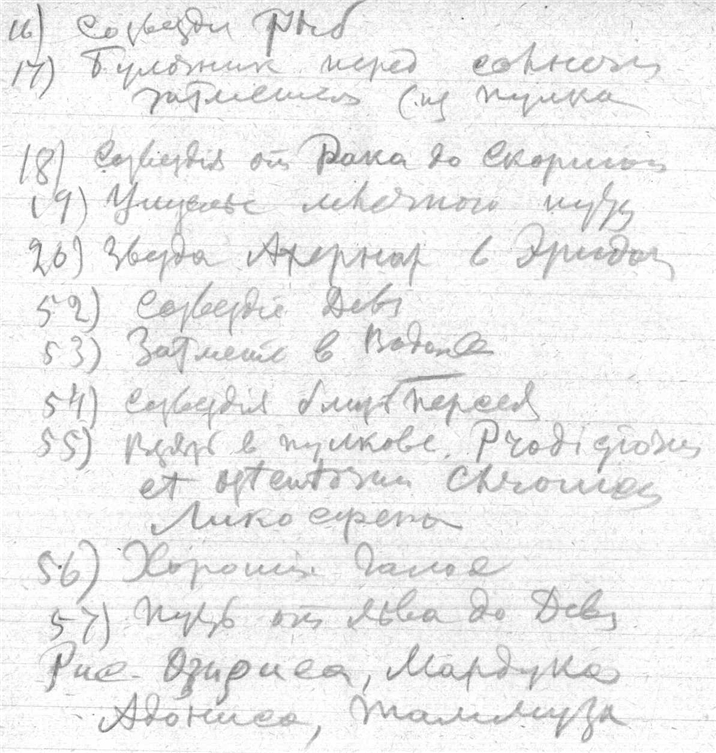 16) Созвездия Рыб
17) Булыжник перед солнечн
затмением (из Пулков
18) Созвездия от Рака до Скорпион
19) Ущелье млечного пути
20) Звезда Ахернар в Эридан
52) Созвездие Девы
53) Затмение в Водолее
54) Созвездия близ Персея
55) Взять в Пулкове. Prodigiorum
et ostentorum Chronicon
Ликосфена
56) Хорошие Галое
57) Путь от Льва до Девы
Рис. Озириса, Мардука
Адониса, Таммуза